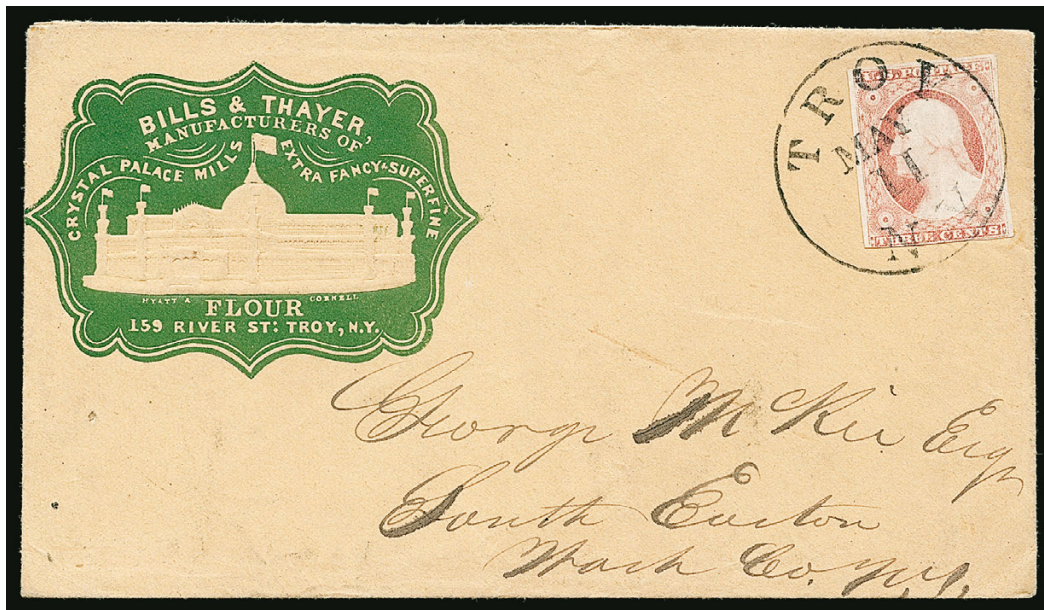 BILLS & THAYER,
MANUFACTURERS OF
CRYSTAL PALACE MILLS EXTRA FANCY & SUPERFINE
HYATT A CORNELL
FLOUR
159 RIVER ST: TROY, N.Y.
TROY
MAY
11
N Y
THREE CENTS
George McKie Esqr
South Easton
Wash Co. N.Y.